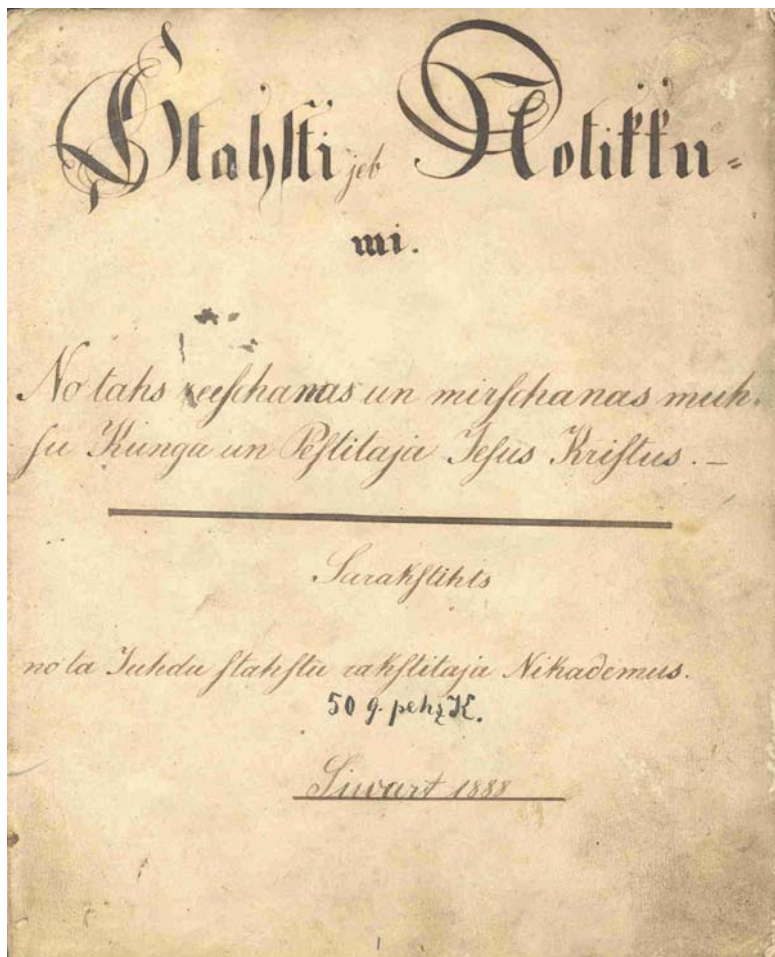 Stahsti jeb Notikku-
mi.
No tahs zeeschanas un mirschanas muh-
su Kunga un Pestitaja Jesus Kristus. —
Sarakstihts
no ta Juhdu stahstu rakstitaja Nikademus.
50 g. pehz K.
Siwart 1888